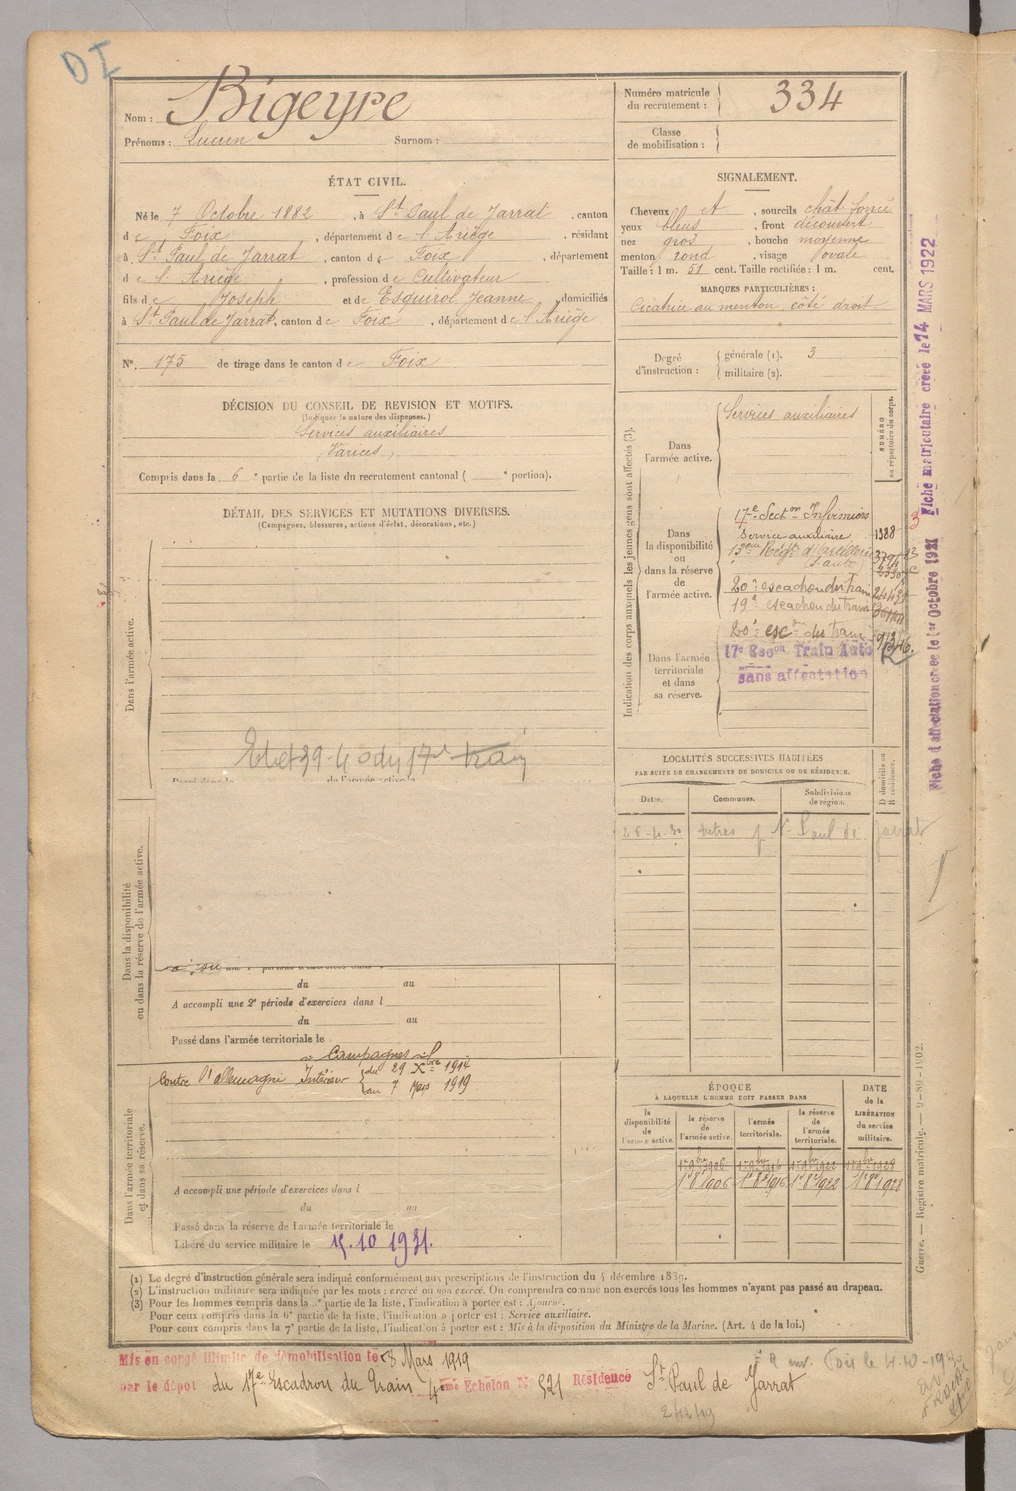 DI
Nom : Bigeyre
Prénoms : Lucien Surnom :
Numéro matricule du recrutement : 334
Classe de mobilisation :
ÉTAT CIVIL.
Né le 7 Octobre 1882, à St Paul de Jarrat, canton
de Foix, département de l'Ariège, résidant
à St Paul de Jarrat, canton de Foix, département
de l'Ariège, profession de Cultivateur
fils de Joseph et de Esquirol Jeanne, domiciliés
à St Paul de Jarrat, canton de Foix, département de l'Ariège
No. 175 de tirage dans le canton de Foix
SIGNALEMENT.
Cheveux et, sourcils chât foncé
yeux bleus, front découvert
nez gros, bouche moyenne
menton rond, visage ovale
Taille : 1 m. 51 cent. Taille rectifiée : 1 m. cent.
MARQUES PARTICULIÈRES :
Cicatrice au menton, côté droit
Degré d'instruction : générale (1). 3
militaire (2).
DÉCISION DU CONSEIL DE REVISION ET MOTIFS.
(Indiquer la nature des dispenses.)
Services auxiliaires
(Varices)
Compris dans la 6e partie de la liste du recrutement cantonal ( e portion).
DÉTAIL DES SERVICES ET MUTATIONS DIVERSES.
(Campagnes, blessures, actions d'éclat, décorations, etc.)
Dans l'armée active.
du 17e train
Dans la disponibilité
ou dans la réserve de l'armée active.
du au
A accompli une 2e période d'exercices dans l
du au
Passé dans l'armée territoriale le
Campagnes
Contre l'allemagne Intérieur du 29 Xbre 1914
au 7 Mars 1919
Dans l'armée territoriale
et dans sa réserve.
A accompli une période d'exercices dans l
du au
Passé dans la réserve de l'armée territoriale le
Libéré du service militaire le 15.10 1931.
Indication des corps auxquels les jeunes gens sont affectés (3).
NUMÉRO
au répertoire du corps.
Dans l'armée active.
Services auxiliaires
Dans la disponibilité ou dans la réserve de l'armée active.
17e Secton Infirmiers
Service auxiliaire 1388
20e escadron du train
19e escadron du train
Dans l'armée territoriale et dans sa réserve.
20e escon du train
17e Escon Train Auto
sans affectation
LOCALITÉS SUCCESSIVES HABITÉES
PAR SUITE DE CHANGEMENTS DE DOMICILE OU DE RÉSIDENCE.
Dates. Communes. Subdivisions de région. D domicile ou R résidence.
Paul de Jarrat
ÉPOQUE
À LAQUELLE L'HOMME DOIT PASSER DANS
DATE de la LIBÉRATION du service militaire.
la disponibilité de l'armée active. la réserve de l'armée active. l'armée territoriale. la réserve de l'armée territoriale.
1r 8bre 1906 1r 8bre 1916 1r 8bre 1922 1r 8bre 1928
Fiche d'affectation créée le 1er Octobre 1921 Fiche matriculaire créée le 14 MARS 1922
Guerre. — Registre matricule. — 9-89-1902.
(1) Le degré d'instruction générale sera indiqué conformément aux prescriptions de l'instruction du 4 décembre 1889.
(2) L'instruction militaire sera indiquée par les mots : exercé ou non exercé. On comprendra comme non exercés tous les hommes n'ayant pas passé au drapeau.
(3) Pour les hommes compris dans la 5e partie de la liste, l'indication à porter est : Ajourné.
Pour ceux compris dans la 6e partie de la liste, l'indication à porter est : Service auxiliaire.
Pour ceux compris dans la 7e partie de la liste, l'indication à porter est : Mis à la disposition du Ministre de la Marine. (Art. 4 de la loi.)
Mis en congé illimité de démobilisation le 8 Mars 1919
par le dépôt du 17e Escadron du Train 4ème Echelon No 521 Résidence St Paul de Jarrat